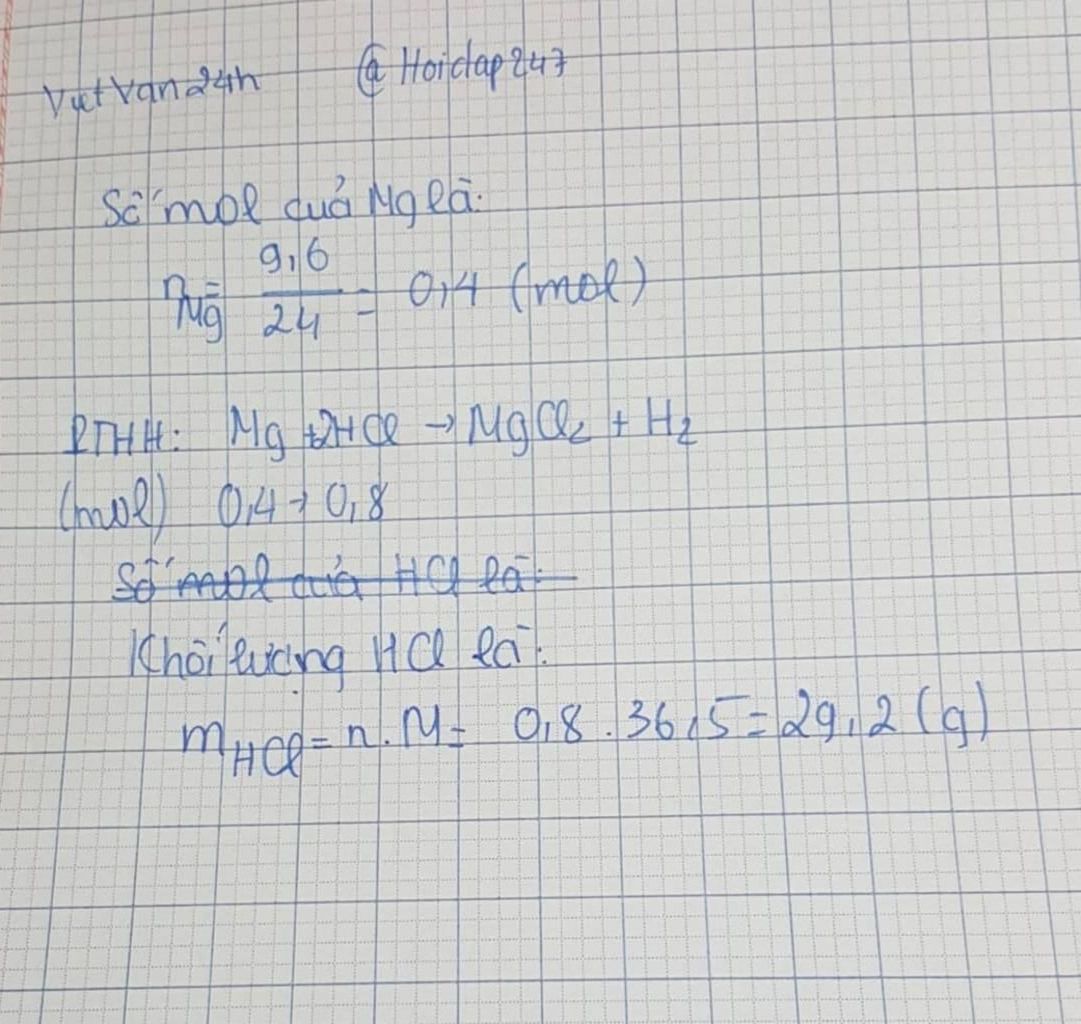 VietVan24h @Hoidap247
Số mol của Mg là:
nMg = 9,6/24 = 0,4 (mol)
PTHH: Mg + 2HCl → MgCl₂ + H₂
(mol) 0,4 → 0,8
Số mol của HCl là:
Khối lượng HCl là:
mHCl = n.M = 0,8 . 36,5 = 29,2 (g)